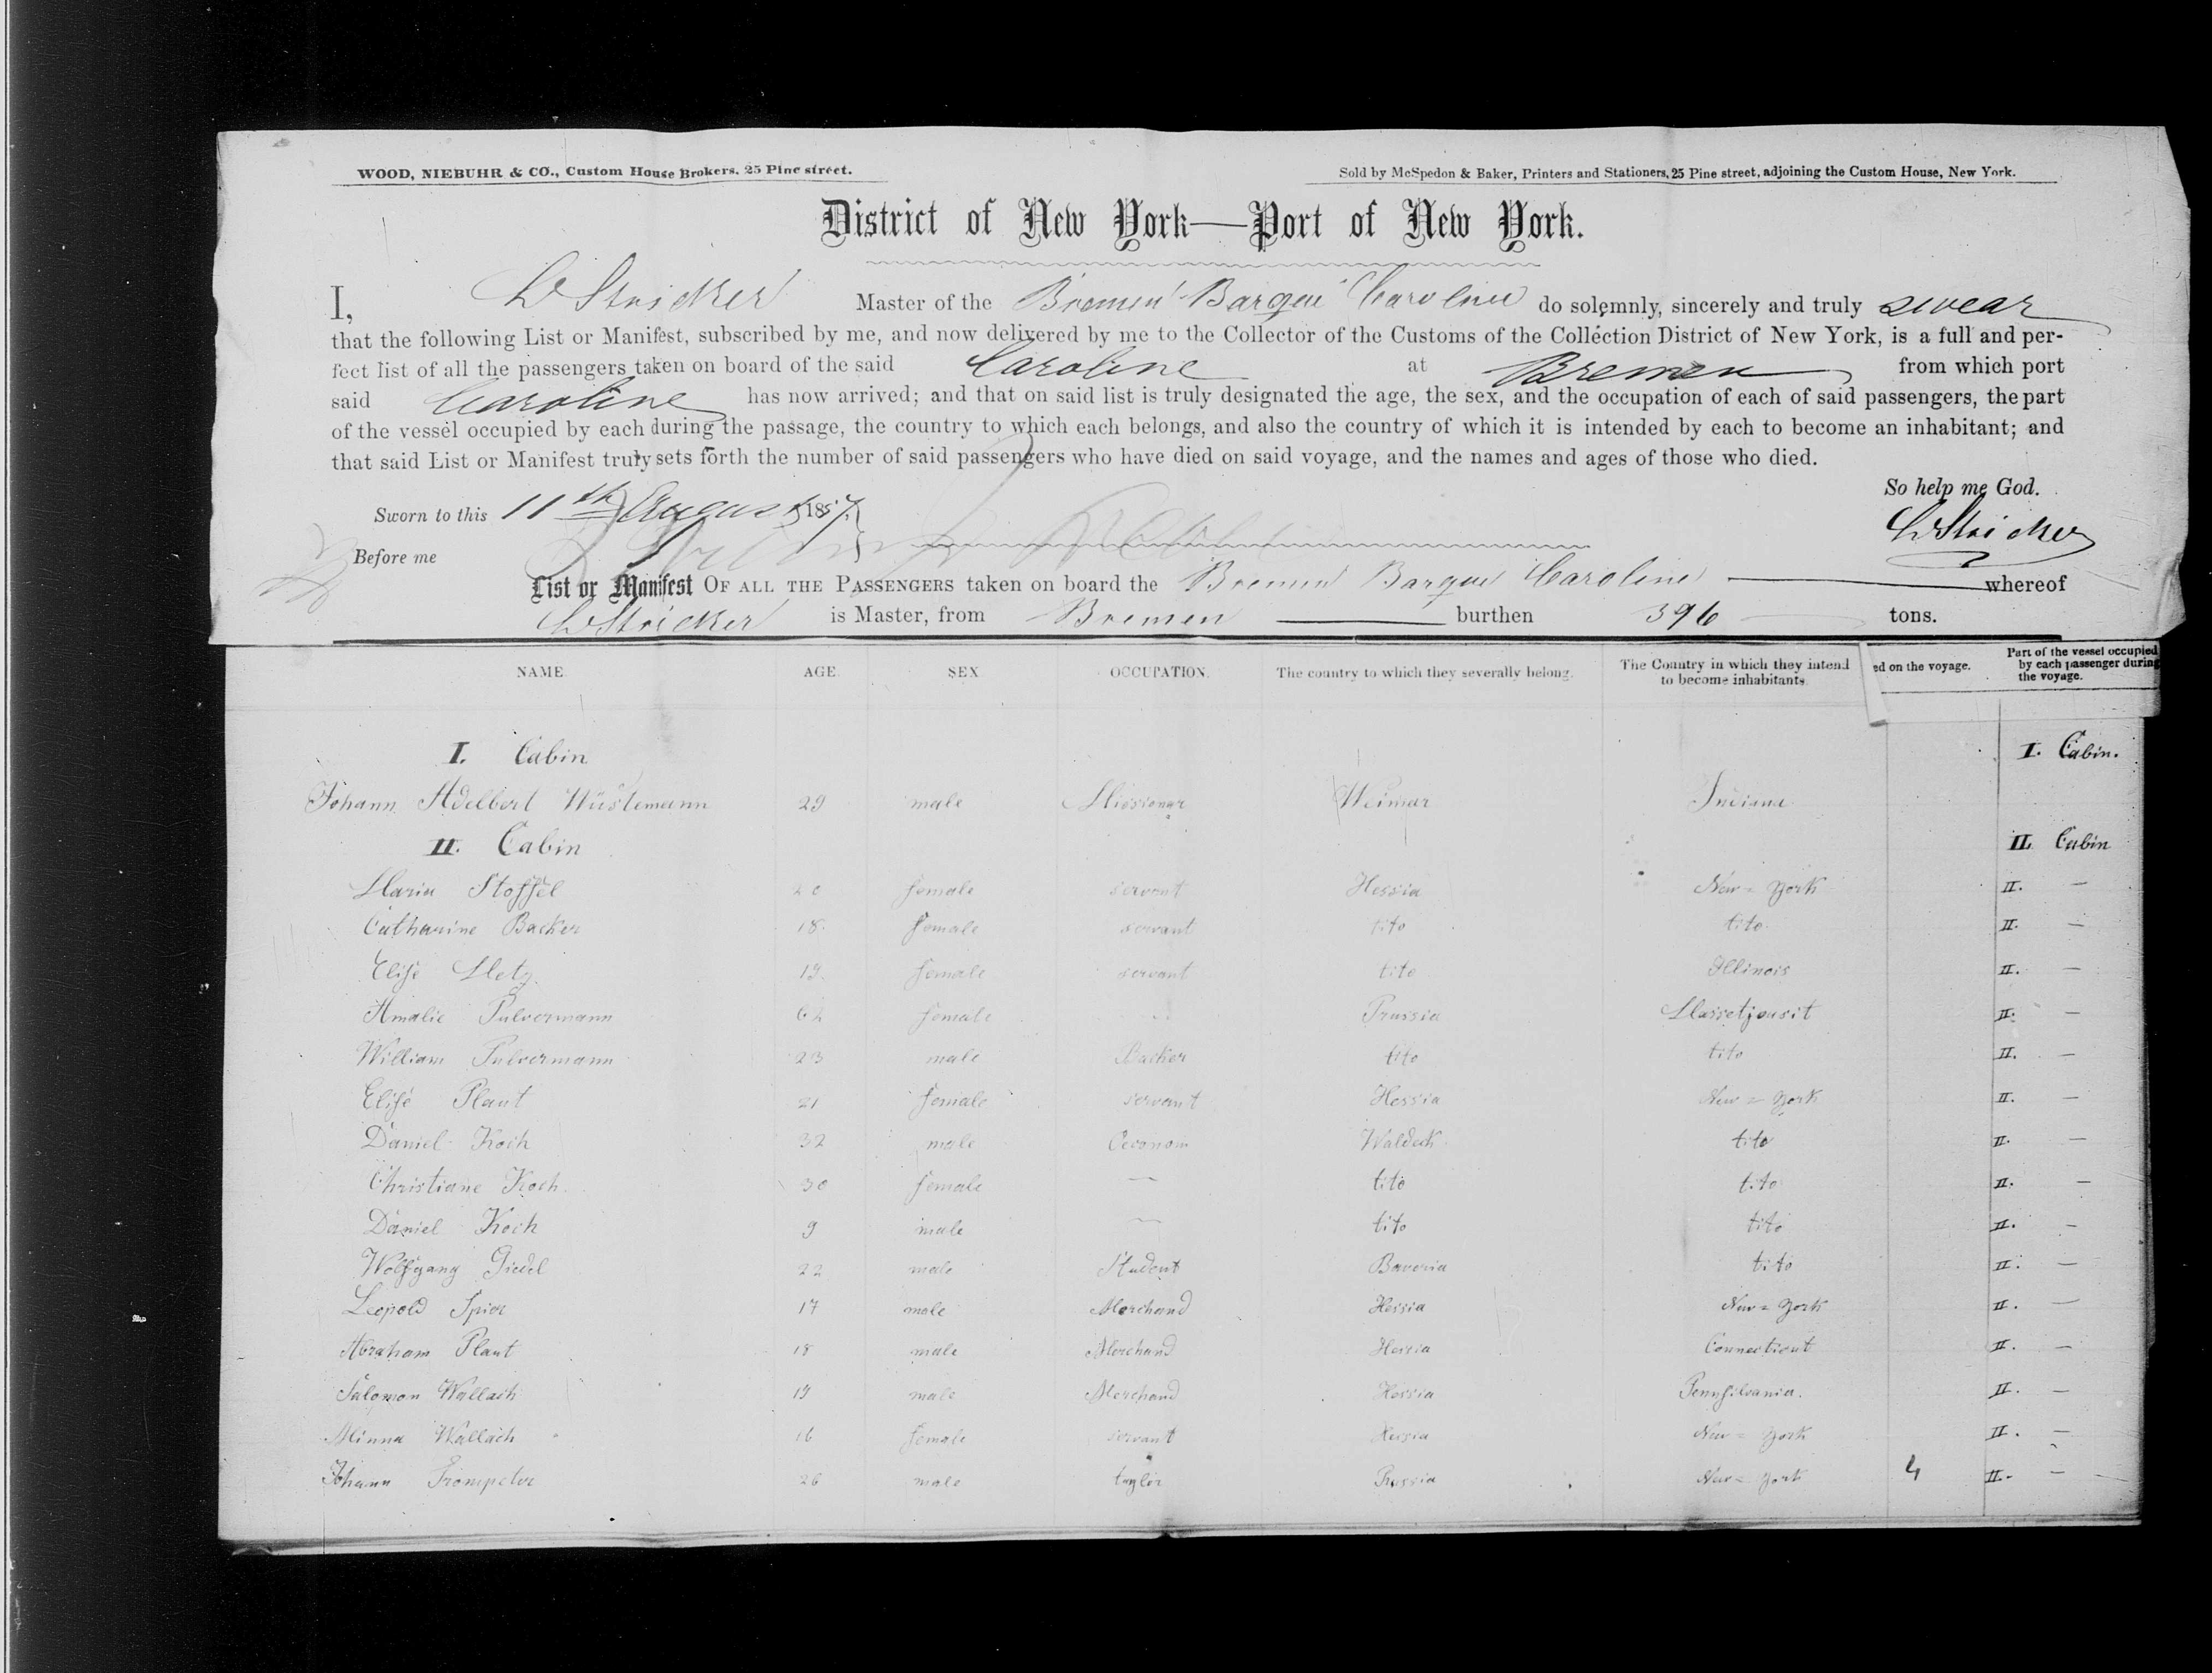 WOOD, NIEBUHR & CO., Custom House Brokers, 25 Pine street. Sold by McSpedon & Baker, Printers and Stationers, 25 Pine street, adjoining the Custom House, New York.
District of New York—Port of New York.
I, Stricker Master of the Bremen Barque Caroline do solemnly, sincerely and truly swear
that the following List or Manifest, subscribed by me, and now delivered by me to the Collector of the Customs of the Collection District of New York, is a full and per-
fect list of all the passengers taken on board of the said Caroline at Bremen from which port
said Caroline has now arrived; and that on said list is truly designated the age, the sex, and the occupation of each of said passengers, the part
of the vessel occupied by each during the passage, the country to which each belongs, and also the country of which it is intended by each to become an inhabitant; and
that said List or Manifest truly sets forth the number of said passengers who have died on said voyage, and the names and ages of those who died.
So help me God.
Sworn to this 11th August 1857. Stricker
Before me
List or Manifest OF ALL THE PASSENGERS taken on board the Bremen Barque Caroline whereof
Stricker is Master, from Bremen burthen 396 tons.
NAME AGE SEX OCCUPATION. The country to which they severally belong. The Country in which they intend to become inhabitants ed on the voyage. Part of the vessel occupied by each passenger during the voyage.
I. Cabin I. Cabin.
Johann Adelbert Wüstemann 29 male Missionar Weimar Indiana
II. Cabin II. Cabin
Maria Stoffel 20 female servant Hessia New=York II. —
Catharine Backer 18 female servant tito tito II. —
Elise Metz 19 female servant tito Illinois II. —
Amalie Pulvermann 62 female Prussia Massetjousit II. —
William Pulvermann 23 male Backer tito tito II. —
Elise Plaut 21 female servant Hessia New=York II. —
Daniel Koch 32 male Oeconom Waldeck tito II. —
Christiane Koch 30 female — tito tito II. —
Daniel Koch 9 male — tito tito II. —
Wolfgang Giedel 22 male Student Bavaria tito II. —
Leopold Spier 17 male Merchand Hessia New=York II. —
Abraham Plaut 18 male Merchand Hessia Connecticut II. —
Salomon Wallach 19 male Merchand Hessia Pennsilvania. II. —
Minna Wallach 16 female servant Hessia New=York II. —
Johann Trompeter 26 male taylor Prussia New=York 4 II. —